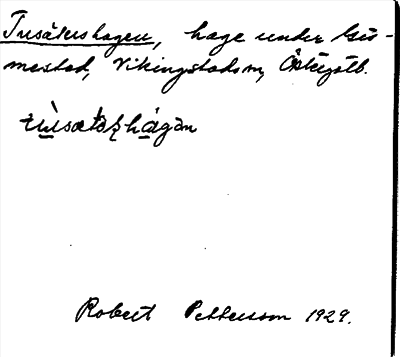 Tusåkershagen, hage under Gis-
mestad, Vikingstads sn, Östergötl.
Robert Pettersson 1929.